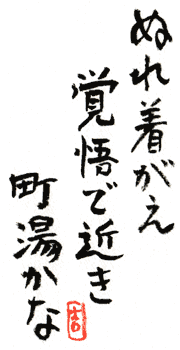 ぬれ着がえ
覚悟で近き
町湯かな
吉